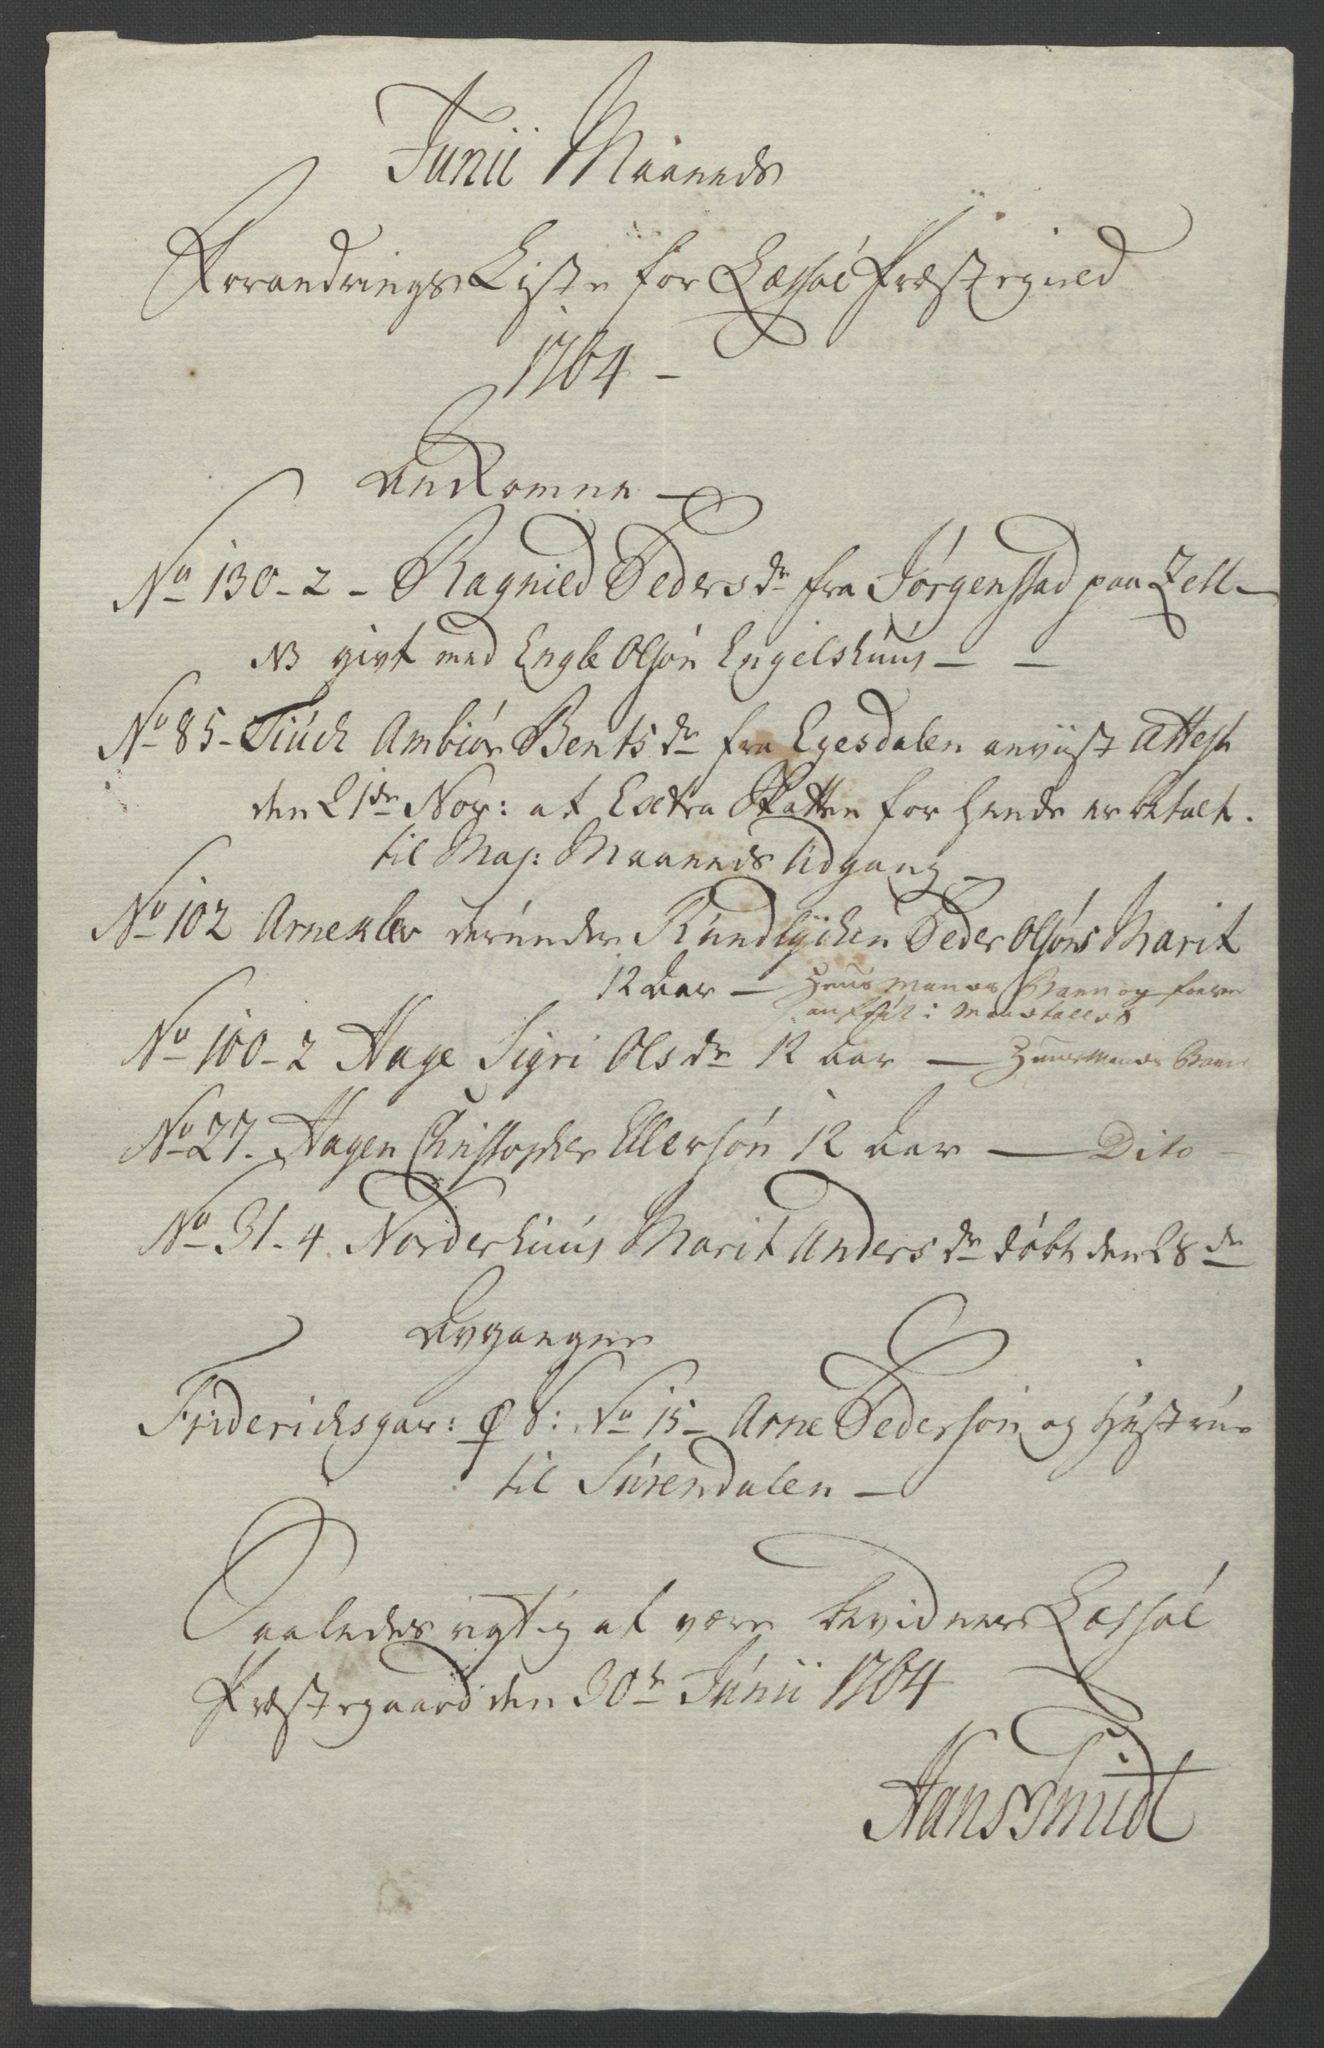 Junii Maaneds
Forandrings Liste for Læssøe Præstegield
1764 -
Ankomne -
No 130 - 2 - Ragnild Peders dr fra Jørgenstad paa Lell -
NB givt med Engle Olsøn Engelshuus - -
No 85 - Siuch Ambiør Bents dr fra Egesdalen anviist Attest
den 21de Nov: at Extra Skatten for hende er betalt.
til Maj: Maaneds Udgang -
No 102 Arneklev derunder Rundlychen Peder Olsøns Marit
12 Aar - Huus Mands Barn og
No 100 - 2 Hage Sigri Ols dr 12 Aar - Huusmands Barn
No 27. Hagen Christopher Ellersøn 12 Aar - Dito -
No 31 - 4. Norderhuus Marit Anders dr døbt den 28 de
Avgangne
Friderichsgav: No 15 - Arne Pedersøn og Hustrue
til Surendalen -
Saaledes rigtig at være bevidner Læssøe
Præstegaard den 30te Junii 1764
Hans Smidt